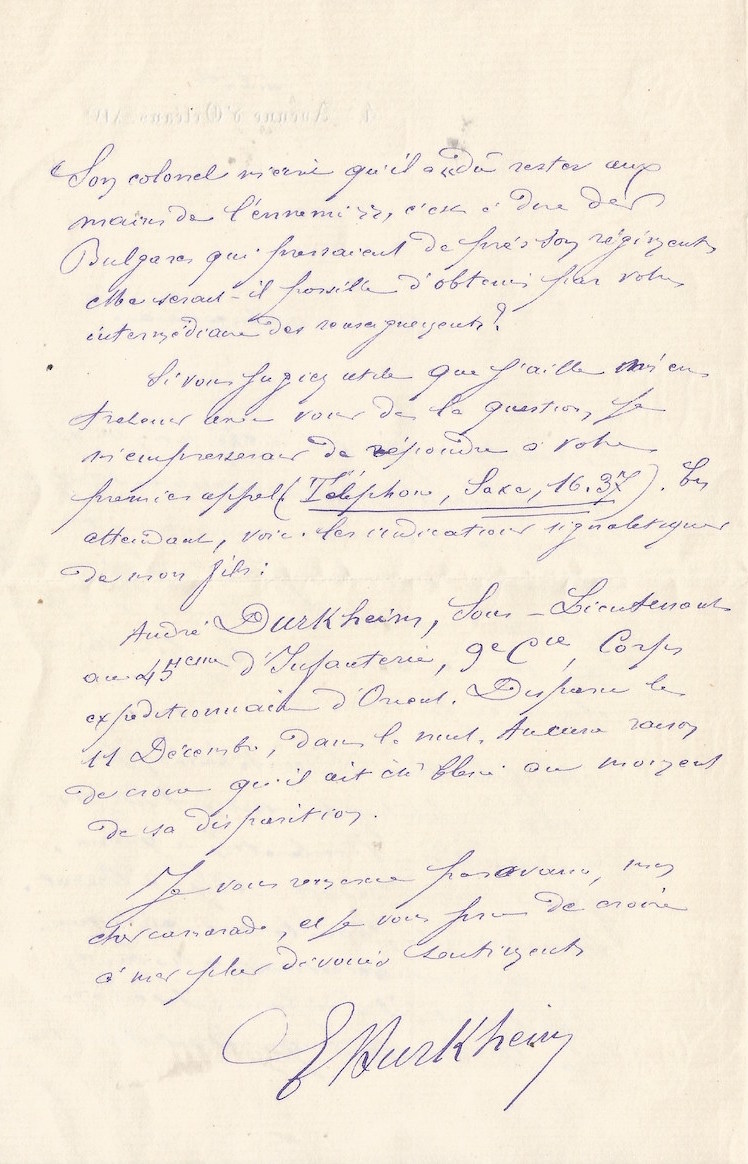 4, Avenue d'Orléans XIVe
Son colonel m'écrit qu'il a « dû rester aux
mains de l'ennemi », c'est à dire des
Bulgares qui pressaient de près son régiment.
Me serait-il possible d'obtenir par votre
intermédiaire des renseignements?
Si vous jugiez utile que j'aille m'en
avec vous de la question, je
m'empresserai de répondre à votre
premier appel (Téléphone, Saxe, 16.37). En
attendant, voici les indications signalétiques
de mon fils:
André Durkheim, Sous-Lieutenant
au 45eme d'Infanterie, 9e Cie, Corps
expéditionnaire d'Orient. Disparu le
11 Décembre, dans la nuit. Aucune raison
de croire qu'il ait été blessé au moment
de sa disparition.
Je vous remercie par avance, mon
cher camarade, et je vous prie de croire
à mes plus dévoués sentiments
E Durkheim